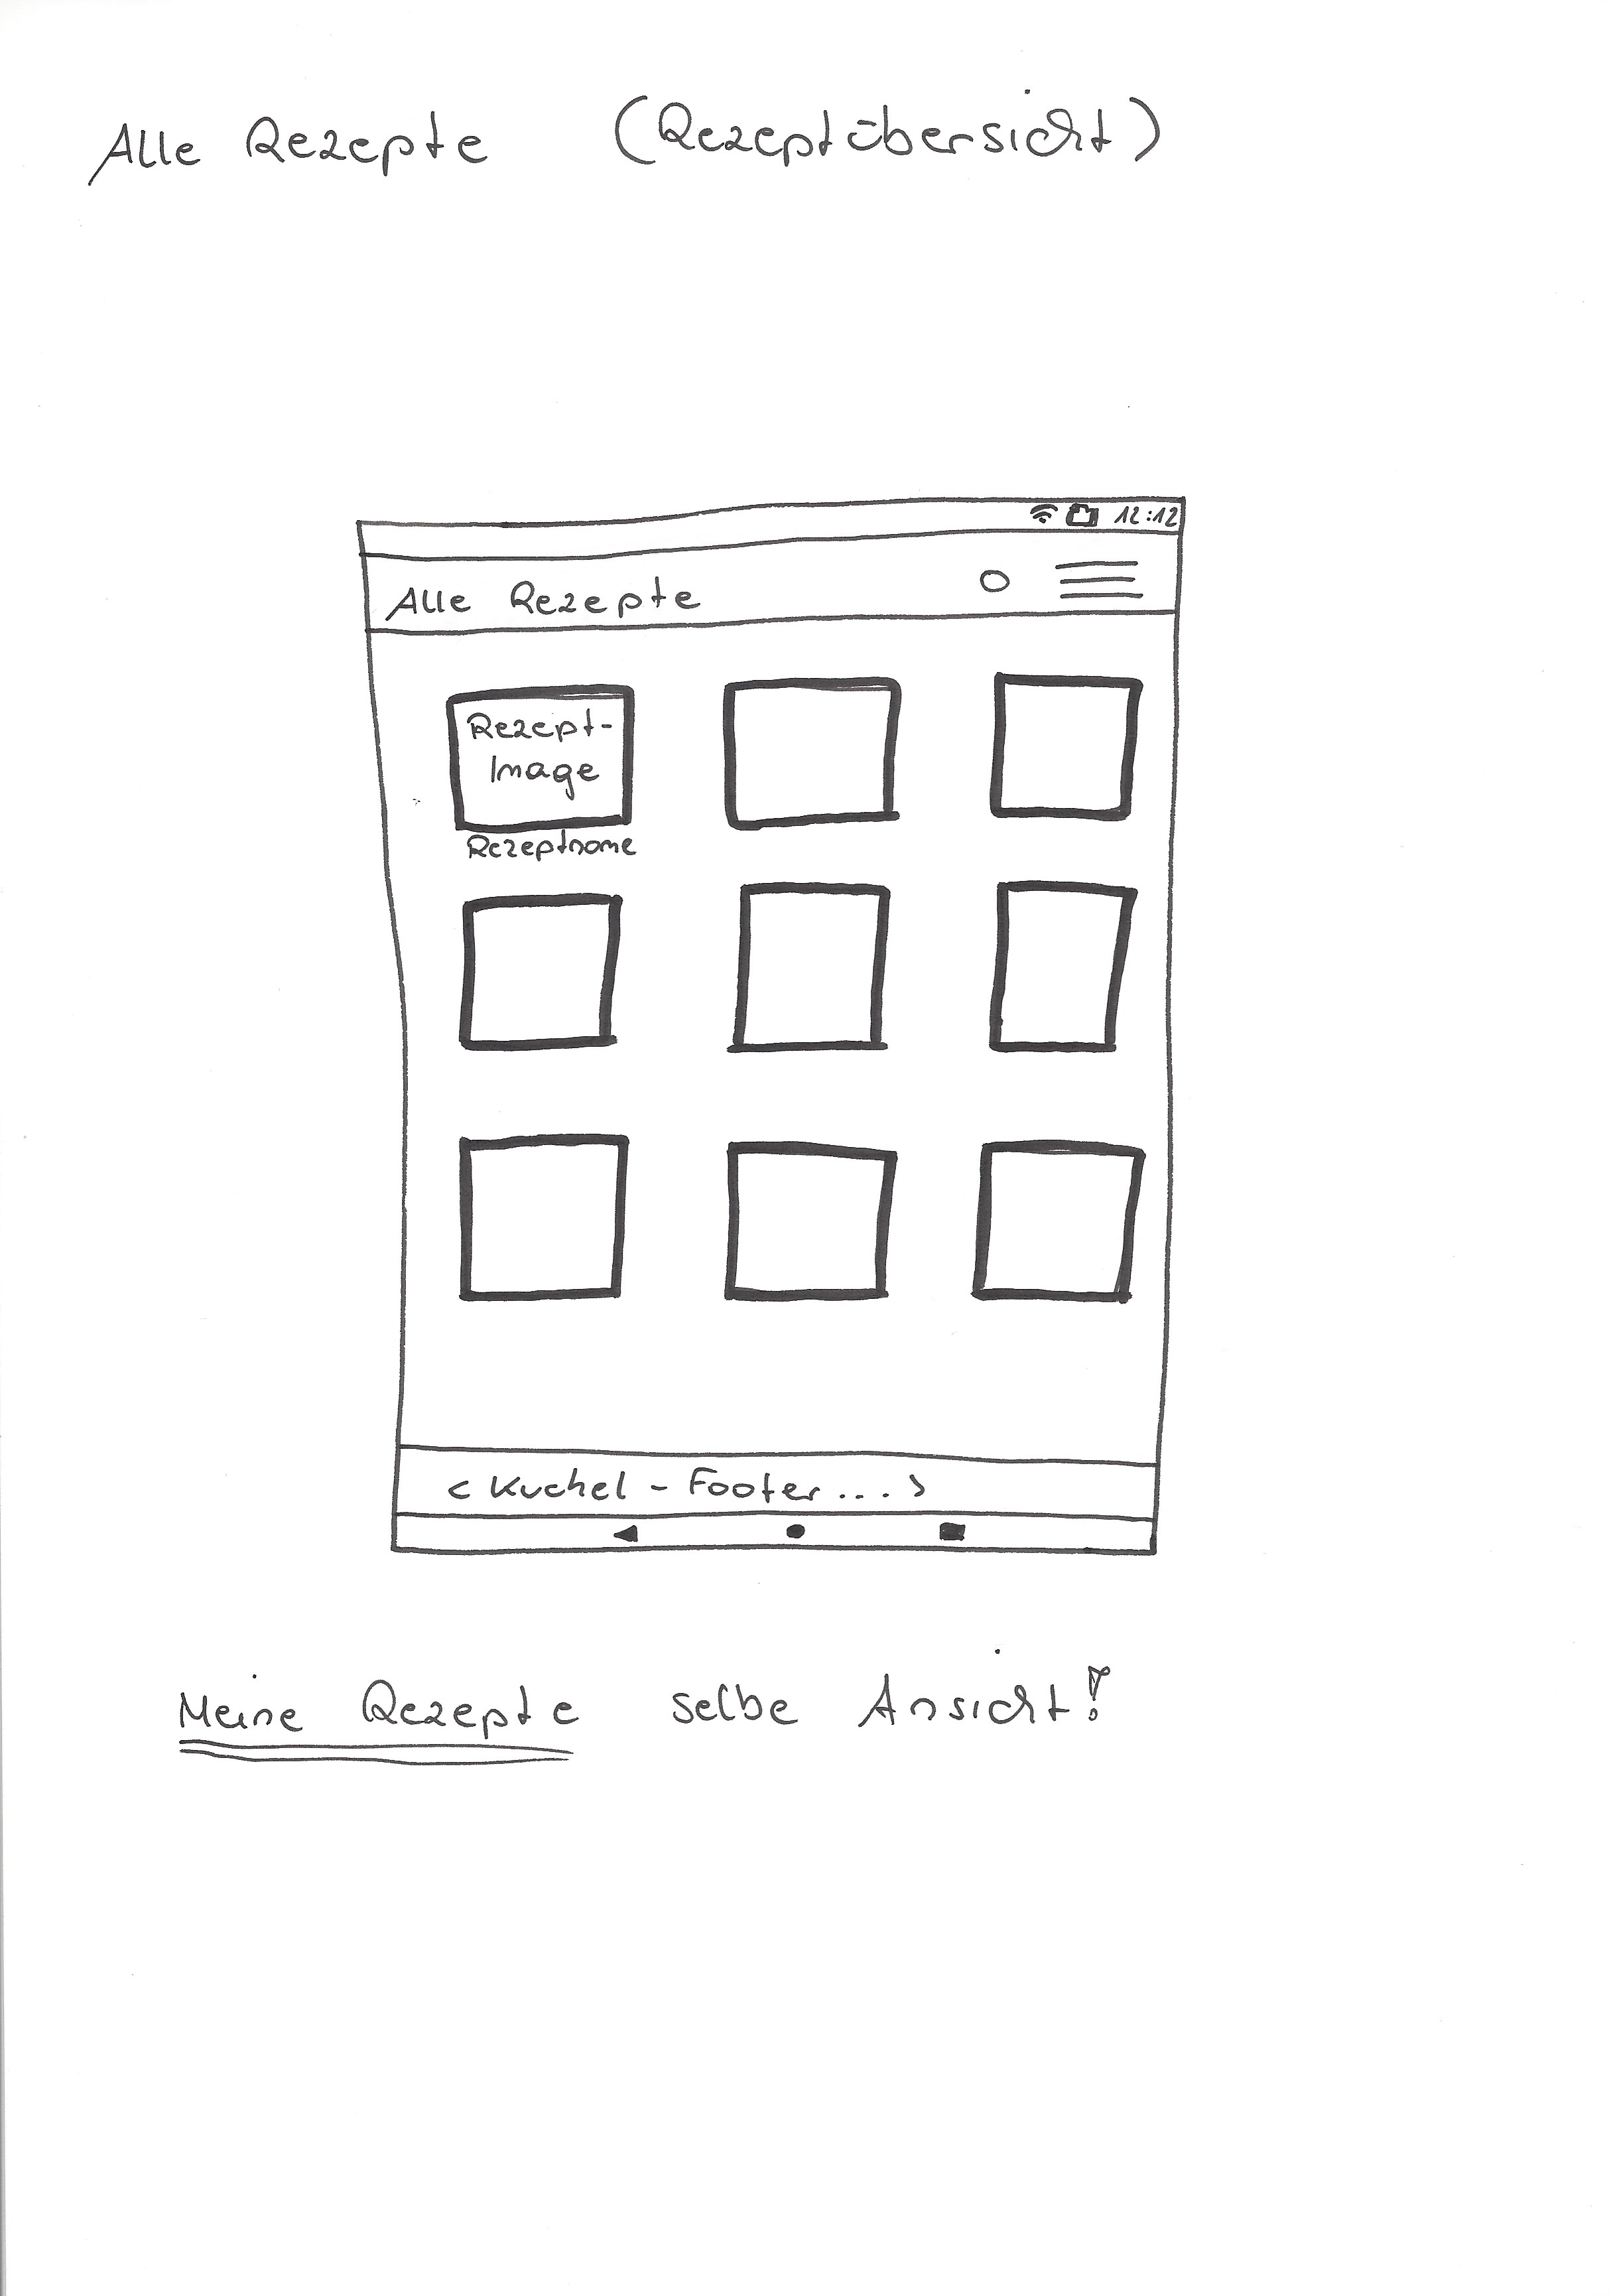 Alle Rezepte (Rezeptübersicht)
12:12
Alle Rezepte
Rezept-
Image
Rezeptname
< Kuchel - Footer ... >
Meine Rezepte selbe Ansicht!